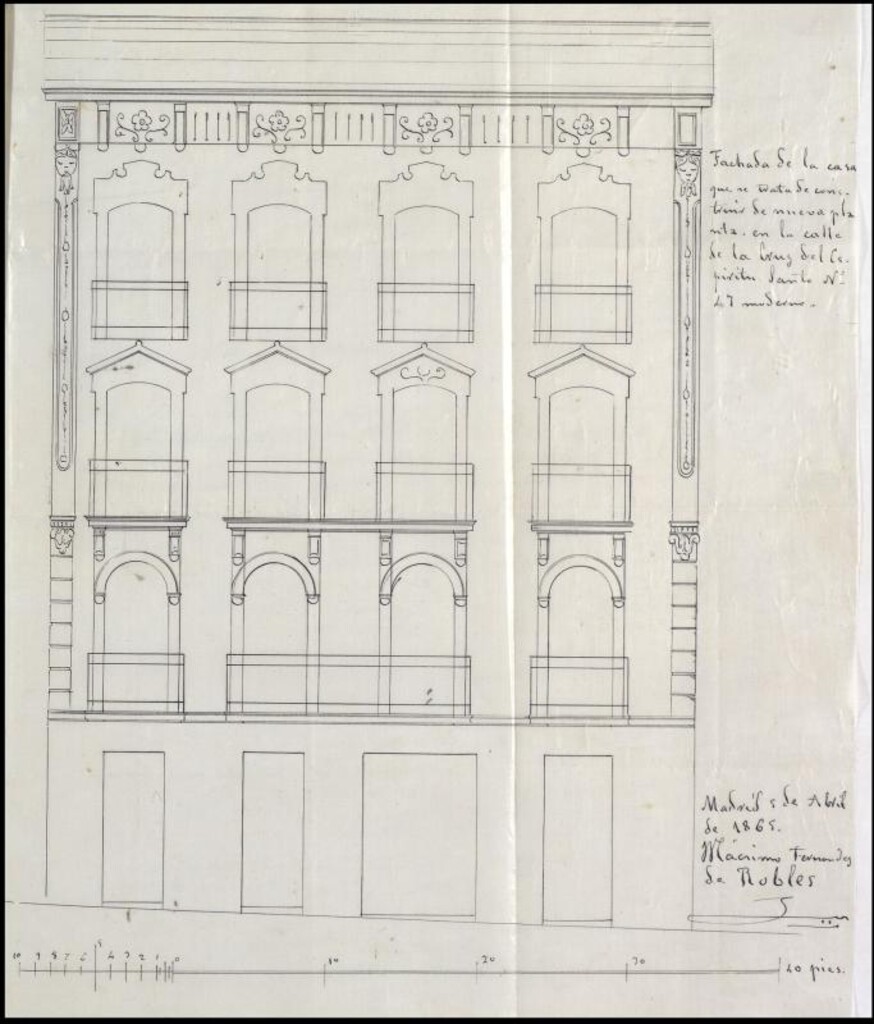 Fachada de la casa
que se trata de cons-
truir de nueva pla
nta. en la calle
de la Cruz del Es-
píritu Santo Nº
27 moderno.
Madrid 5 de Abril
de 1865.
Máximo Fernandez
de Robles
10 9 8 7 6 5 4 3 2 1 0 10 20 30 40 pies.